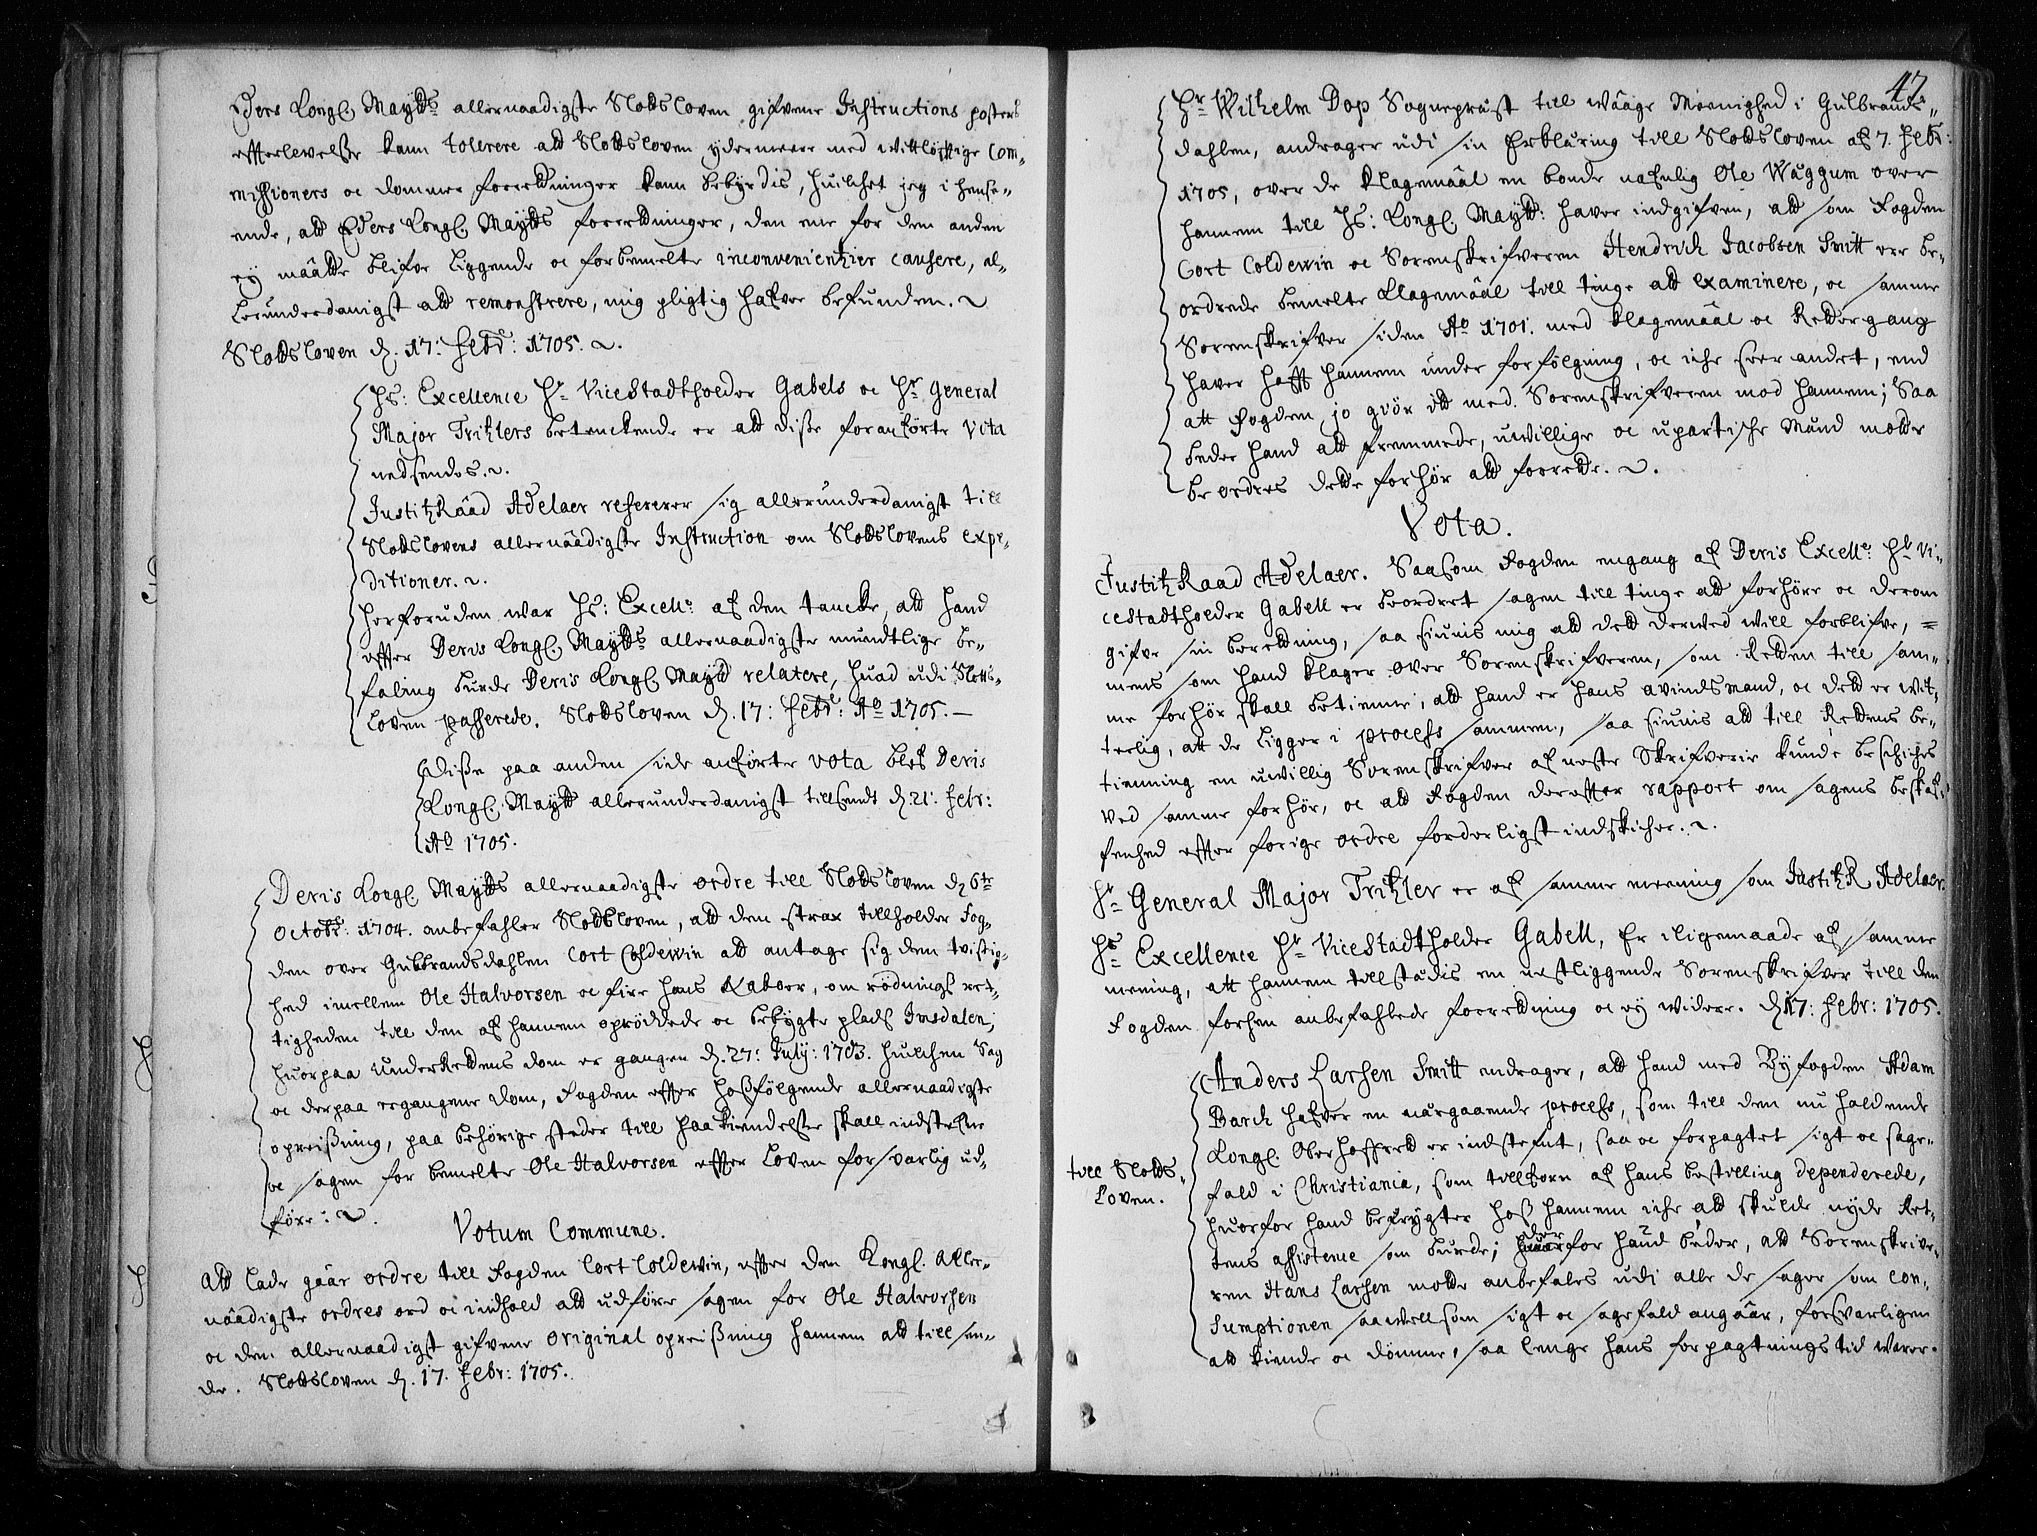 Eders Kongl. Maytts allernaadigste Slotsloven gifvene Instructions posters
efterlevelse kann tollerere att Slotsloven ydermeere med vittløftige Com-
missioners oc dommes forretninger kann bebyrdis, huilchet jeg i hense-
ende, att Eders Kongl. Maytts forretninger, den ene for den anden
ey maatte blifve liggende oc forbemelte inconvenientzier causere, al-
lerunderdanigst att remonstrere, mig pligtig hafver befunden.
Slotsloven d. 17: Febr: 1705.
Hs: Excellence Hr ViceStadtholder Gabels oc Hr General
Major Tritzlers betenckende er att disse foranførte Vota
nedsendes.
JustitzRaad Adelaer refererer sig allerunderdanigst till
Slotslovens allernaadigste Instruction om Slotslovens expe-
ditioner.
Herforuden war Hs: Excell: af den tancke, att hand
efter Deris Kongl. Maytts allernaadigste mundtlige be-
faling burde Deris Kongl. Maytt relatere, huad udi Slots-
loven passerede. Slotsloven d. 17: Febr: Ao 1705.
Disse paa anden side anførte vota blef Deris
Kongl. Maytt allerunderdanigst tillsendt d. 21: Febr:
Ao 1705.
Deris Kongl. Maytts allernaadigste ordre till Slotsloven d 6te
Octobr: 1704. anbefahler Slotsloven, att den strax tillholder Fog-
den over Gulbrandsdahlen Cort Coldewin att antage sig den tvistig-
hed imellem Ole Halvorsen oc fire hans Naboer, om rødnings ret-
tigheden till den af hannem oprøddede oc bebygte plads Imsdalen,
huorpaa UnderRettens dom er gangen d. 27: July: 1703. huilchen Sag
oc derpaa ergangene dom, Fogden efter hosfølgende allernaadigste
opreisning, paa behørige steder till Paakiendelse skall indstefne
oc sagen for bemelte Ole Halvorsen efter Loven forsvarlig ud-
føre:
Votum Commune.
Att lade gaar ordre till Fogden Cort Coldewin, efter den Kongl. Aller-
naadigste ordres ord oc indhold att udføre sagen for Ole Halvorsen
oc den allernaadigst gifvene original opreisning hannem att till sen-
de. Slotsloven d. 17. Febr: 1705.
47
Hr Wilhelm Dop Sognepræst till Waage Meenighed i Gulbrands-
dahlen, andrager udi sin Erklæring till Slotsloven af 7. Febr:
1705, over de Klagemaal en bonde nafnlig Ole Waggum over
hannem till Hs: Kongl. Maytt: haver indgifven, att som Fogden
Cort Coldewin oc Sorenskrifveren Hendrich Jacobsen Smitt ere be-
ordrede bemelte Klagemaal till tinge att examinere, oc samme
Sorenskrifver siden Ao 1701. med Klagemaal oc Rettergang
haver hafft hannem under forfølgning, oc iche seer andet, end
att Fogden jo giør ett med Sorenskrifveren mod hannem; Saa
beder hand att fremmede, uwillige oc upartische Mænd motte
beordres dette forhør att forrette.
Vota.
JustitzRaad Adelaer. Saasom Fogden engang af Deris Excelle: Hr Vi-
cestadtholder Gabell er beordret sagen till tinge att forhøre oc derom
gifve sin beretning, saa siunis mig att dett derved will forblifve,
mens som hand klager over Sorenskrifveren, som Retten till sam-
me forhør skall betienne, att hand er hans avindsmand, oc dett er wit-
terlig, att de ligger i process sammen, saa siunis att till Rettens be-
tienning en uwillig Sorenskrifver af neste Skrifverie kunde beschiches
ved samme forhør, oc att Fogden derefter rapport om sagens beskaf-
fenhed efter forige ordre forderligst indskicher.
Hr General Major Tritzler er af samme meening som JustitzR Adelaer.
Hs Excellence Hr ViceStadtholder Gabell, Er iligemaade af samme
mening, att hannem tillstædis en nestliggende Sorenskrifver till den
Fogden forhen anbefahlede forretning oc ey widere. d 17: Febr: 1705.
till Slots-
Loven.
Anders Larsen Smitt andrager, att hand med Byfogden Adam
Barch hafver en nærgaaende process, som till den nu holdende
Kongl. Oberhoffret er indstefnt, saa oc forpagtet sigt oc sage-
fald i Christiania, som tillforn af hans bestilling dependerede,
huorfor hand befrygter hoss hannem iche att skulde nyde Ret-
tens assistence som burde; derfor hand beder, att Sorenskrive-
ren Hans Larsen motte anbefales udi alle de sager som Con-
sumptionen saavell som sigt oc sagefald angaar, forsvarligen
att kiende oc dømme, saa lenge hans forpagtnings tid varer.